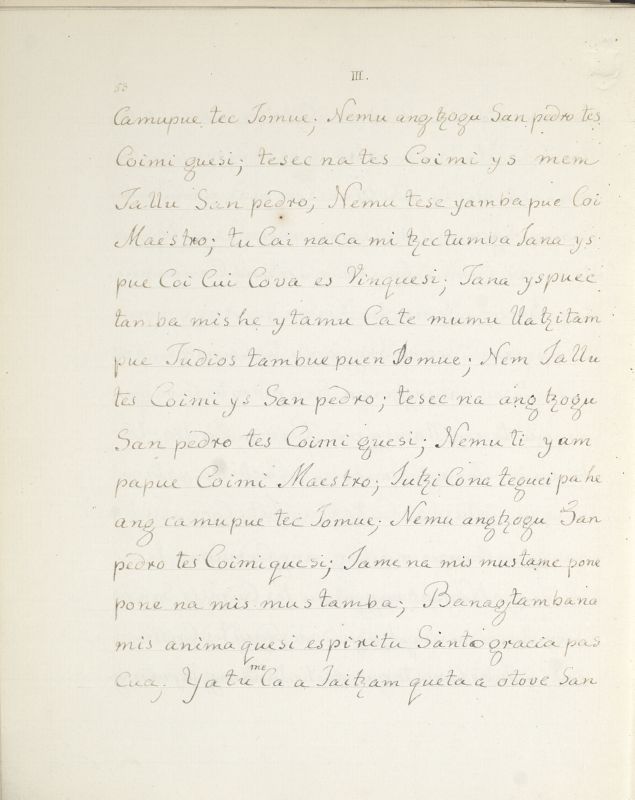 III.
53
Camupue tec Jomue; Nemu angtzogu San pedro tes
Coimi quesi; tesec na tes Coimi ys mem
Jallu San pedro; Nemu tese yambapue Coi
Maestro; tu Cai naca mi tzectumba Jana ys
pue Coi Cui Cova es Vinquesi; Jana yspuec
tanba mis he ytamu Cate mumu Uatzitam
pue Judios tambuepuen Jomue; Nem Jallu
tes Coimi ys San pedro; tesec na angtzogu
San pedro tes Coimi quesi; Nemu ti yam
papue Coimi Maestro; Jutzi Cona teguei pa he
ang camupue tec Jomue; Nemu angtzogu San
pedro tes Coimi quesi; Jame na mis mustame pone
pone na mis mus tamba; Banagtambana
mis anima quesi espiritu Santo gracia pas
Cua; Yatu me Ca a Jaitzam queta a otove San